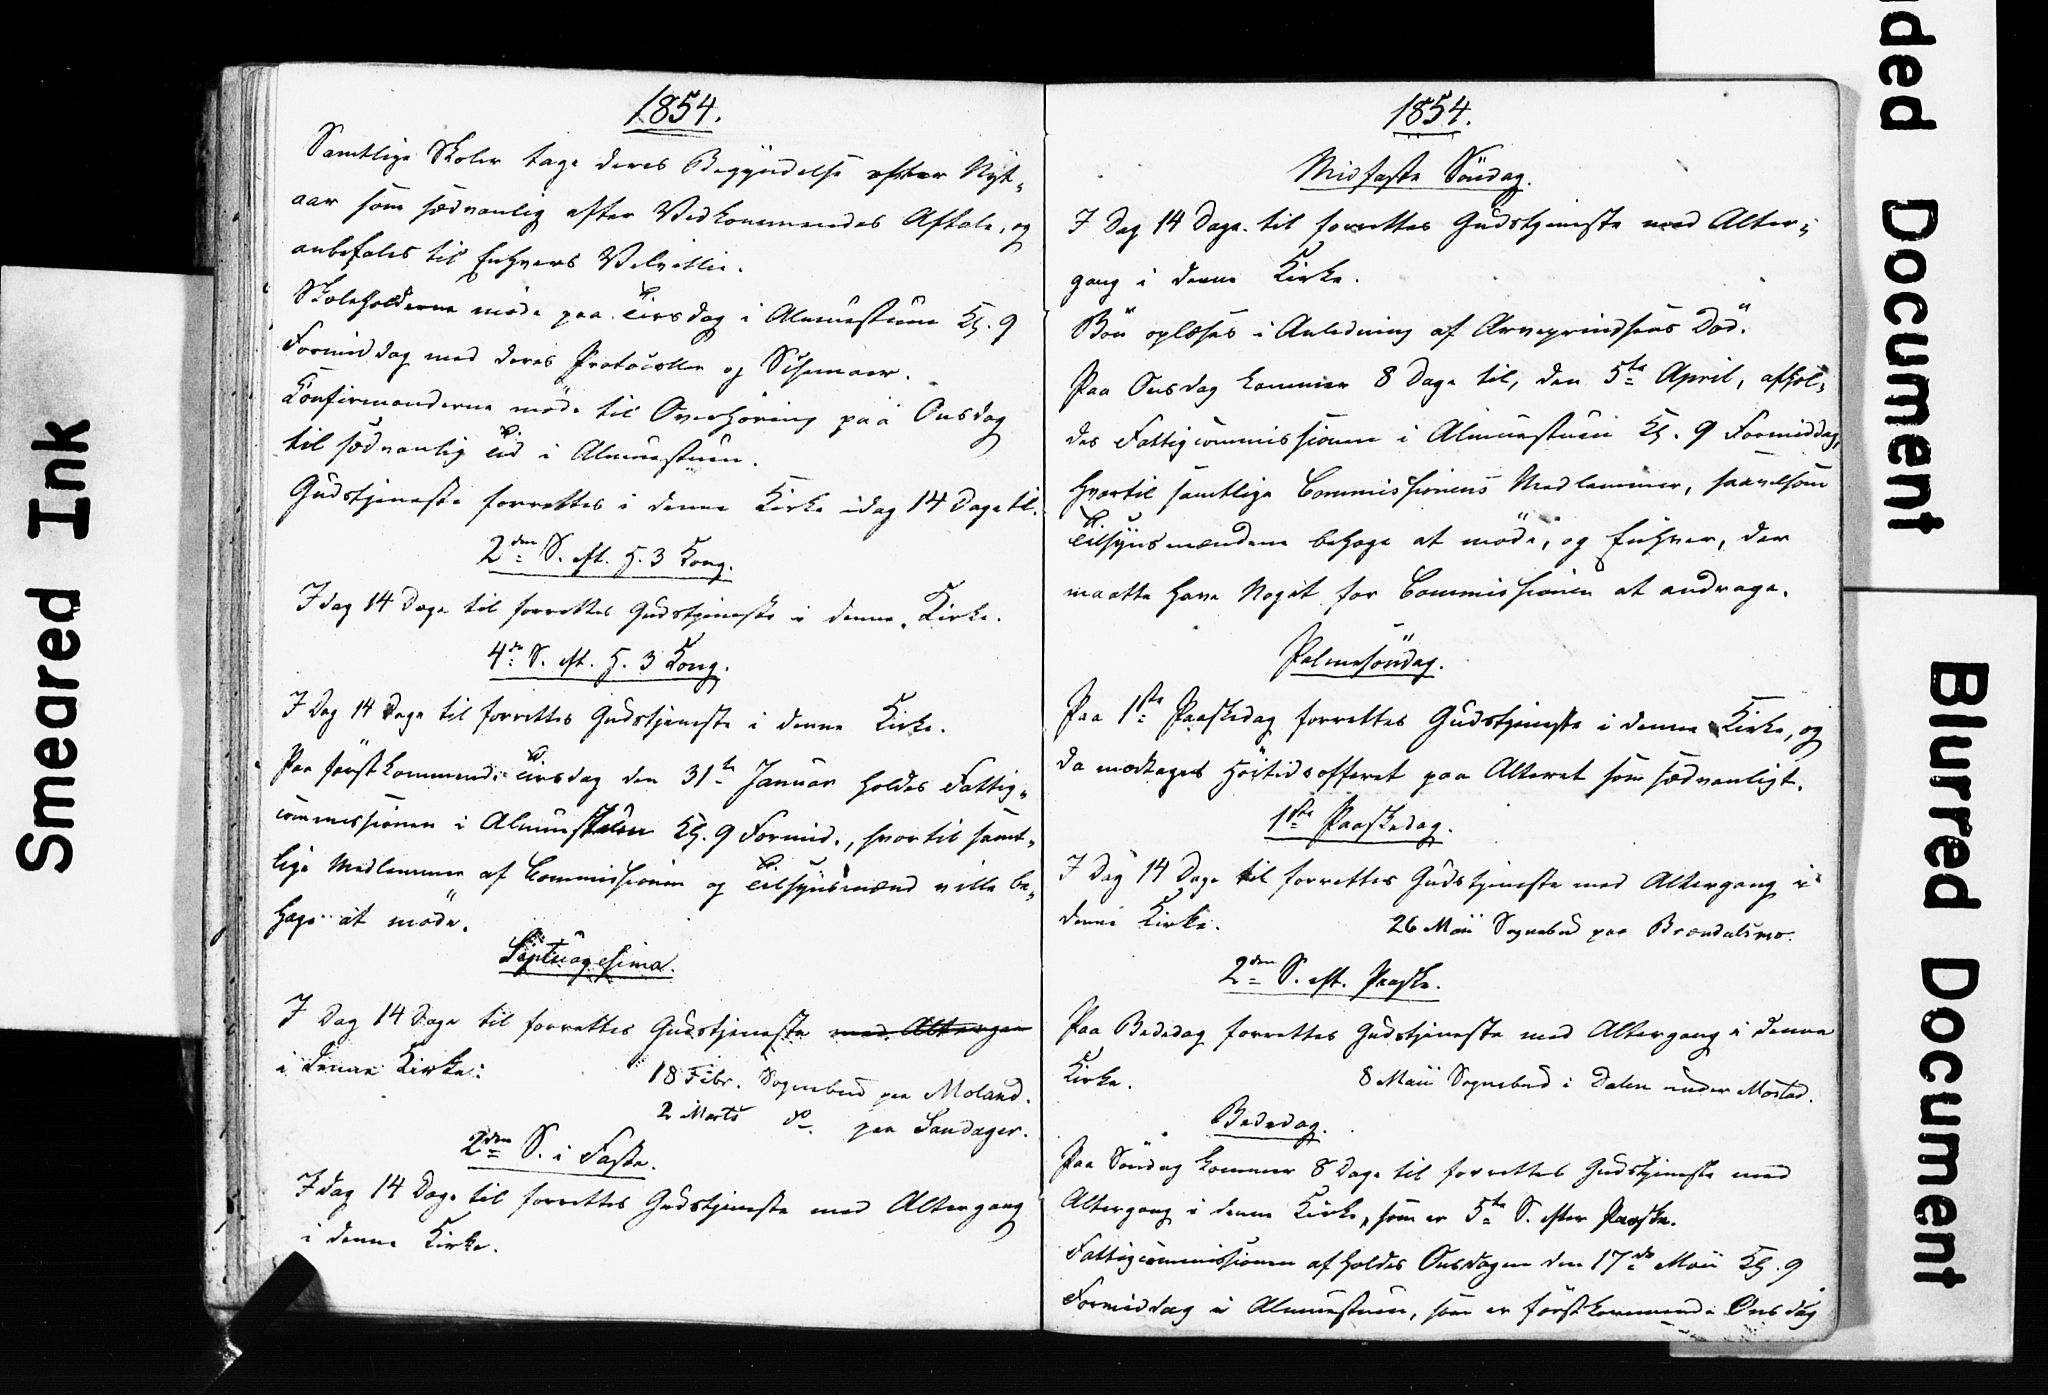 1854.
Samtlige Skoler tage deres Begyndelse efter Nyt-
aar som sædvanlig efter Vedkommendes Aftale, og
anbefales til Enhvers Velvillie.
Skoleholderne møde paa Tirsdag i Almuestuen Kl. 9
Formiddag med deres Protocoller og Schemaer.
Confirmanderne møde til Overhøring paa Onsdag
til sædvanlig Tid i Almuestuen.
Gudstjeneste forrettes i denne Kirke idag 14 Dage til.
2den S. eft. H. 3 Kong.
I dag 14 Dage til forrettes Gudstjeneste i denne Kirke.
4de S. eft. H. 3 Kong.
I Dag 14 Dage til forrettes Gudstjeneste i denne Kirke.
Paa førstkommende Tirsdag den 31te Januar holdes Fattig-
commissionen i Almuestuen Kl. 9 Formid., hvortil samt-
lige Medlemmer af Commissionen og Tilsynsmænd ville be-
hage at møde.
Septuagesima.
I Dag 14 Dage til forrettes Gudstjeneste med Altergan
i denne Kirke.
18 Febr. Sognebud paa Moland.
2 Marts do. paa Sandager.
2den S. i Faste.
I dag 14 Dage til forrettes Gudstjeneste med Altergang
i denne Kirke.
1854.
Midfaste Söndag.
I Dag 14 Dage til forrettes Gudstjeneste med Alter-
gang i denne Kirke.
Bön oplæses i Anledning af Arveprindsens Död.
Paa Onsdag kommer 8 Dage til, den 5te April, afhol-
des Fattigcommissionen i Almuestuen Kl. 9 Formiddag,
hvortil samtlige Commissionens Medlemmer, saavelsom
Tilsynsmændene behage at möde, og Enhver, der
maatte have Noget for Commissionen at andrage.
Palmesöndag.
Paa 1ste Paaskedag forrettes Gudstjeneste i denne Kirke, og
da modtages Höitidsofferet paa Alteret som sædvanligt.
1ste Paaskedag.
I Dag 14 Dage til forrettes Gudstjeneste med Altergang i
denne Kirke.
26 Maii Sognebud paa Brændalsmo.
2den S. eft. Paaske.
Paa Bededag forrettes Gudstjeneste med Altergang i denne
Kirke.
8 Maii Sognebud i Dalen under Mostad.
Bededag.
Paa Söndag kommer 8 Dage til forrettes Gudstjeneste med
Altergang i denne Kirke, som er 5te S. efter Paaske.
Fattigcommissionen afholdes Onsdagen den 17de Maii Kl. 9
Formiddag i Almuestuen, som er förstkommende Onsdag
Smeared Ink
ded Document
Blurred Document